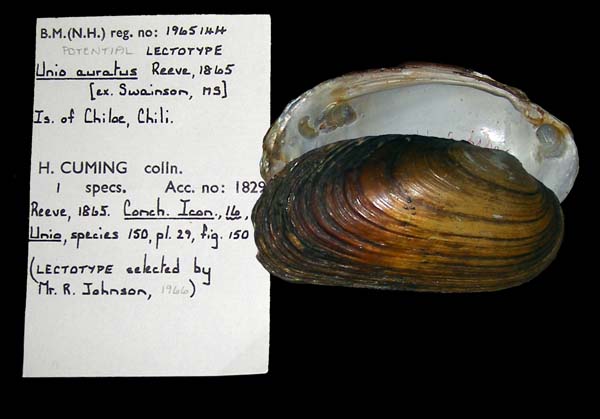 B.M.(N.H.) reg. no: 1965144
POTENTIAL LECTOTYPE
Unio auratus Reeve, 1865
[ex. Swainson, MS]
Is. of Chiloe, Chili.
H. CUMING colln.
1 specs. Acc. no: 1829
Reeve, 1865. Conch. Icon., 16,
Unio, species 150, pl. 29, fig. 150
(LECTOTYPE selected by
Mr. R. Johnson, 1966)